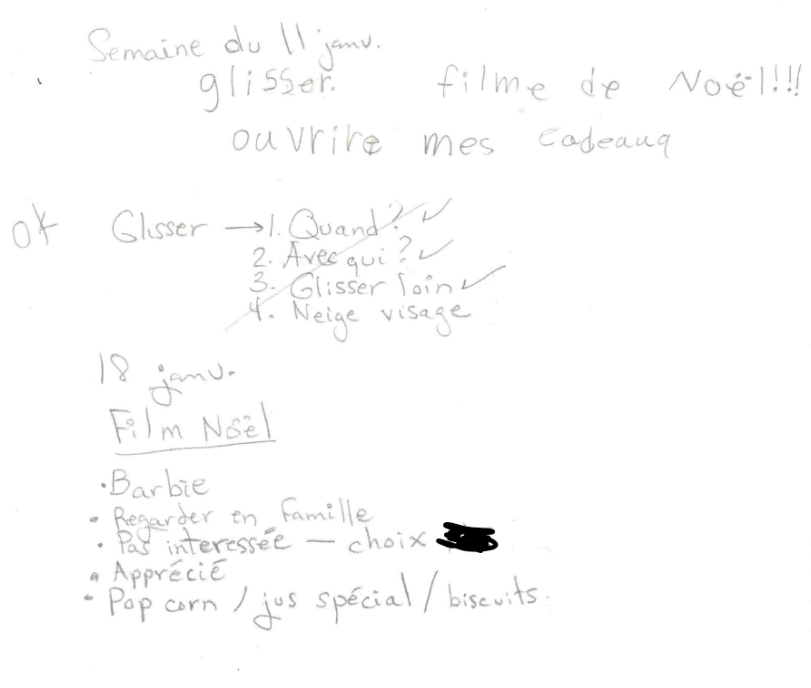 Semaine du 11 janv.
glisser. filme de Noël!!!
ouvrire mes cadeauq
ok Glisser → 1. Quand? ✓
2. Avec qui? ✓
3. Glisser loin ✓
4. Neige visage
18 janv.
Film Nöël
• Barbie
• Regarder en famille
• Pas interessée — choix
• Apprécié
• Pop corn / jus spécial / biscuits.